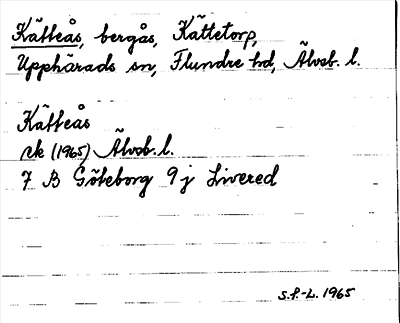 Kätteås, bergås, Kättetorp,
Upphärads sn, Flundre hd, Älvsb. l.
Kätteås
rk (1965) Älvsb. l.
7 B Göteborg 9j Livered
S.F.-L. 1965